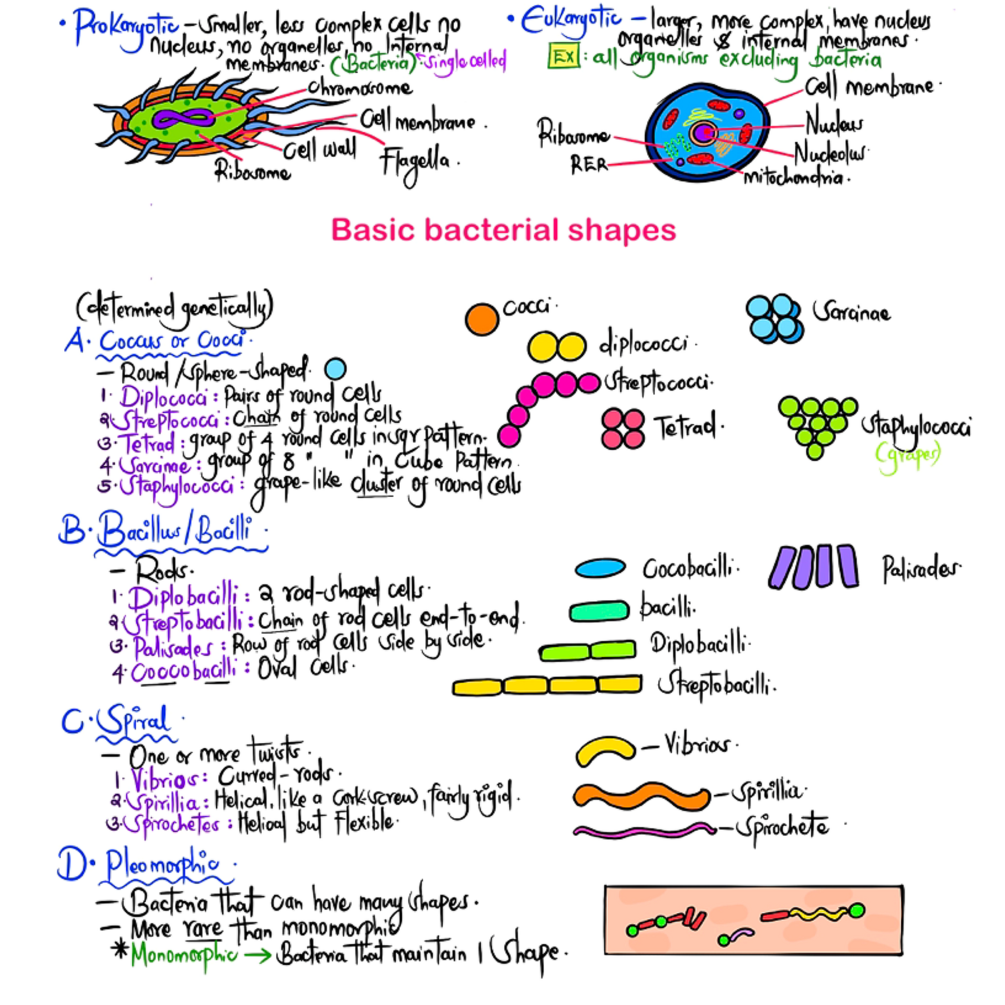 • Prokaryotic – smaller, less complex cells no
nucleus, no organelles, no Internal
membranes. (Bacteria) • single celled
Chromosome
Cell membrane.
Cell wall
Flagella.
Ribosome
• Eukaryotic – larger, more complex, have nucleus
organelles & internal membranes.
EX : all organisms excluding bacteria
Cell membrane.
Ribosome
Nucleus
Nucleolus.
RER
mitochondria.
Basic bacterial shapes
(determined genetically)
A. Coccus or Cocci.
– Round/sphere-shaped.
1. Diplococci : Pairs of round cells
2. Streptococci : Chain of round cells
3. Tetrad : group of 4 round cells in sqr pattern.
4. Sarcinae : group of 8 " " in Cube Pattern.
5. Staphylococci : grape-like cluster of round cells
Cocci.
diplococci.
Streptococci.
Tetrad.
Sarcinae
Staphylococci
(grapes)
B. Bacillus/Bacilli.
– Rods.
1. Diplobacilli : 2 rod-shaped cells.
2. Streptobacilli : Chain of rod cells end-to-end.
3. Palisades : Row of rod cells side by side.
4. Coccobacilli : Oval cells.
Cocobacilli.
bacilli.
Diplobacilli
Streptobacilli.
Palisades.
C. Spiral.
– One or more twists.
1. Vibrios : Curved-rods.
2. Spirillia : Helical, like a cork-screw, fairly rigid.
3. Spirochetes : Helical but Flexible.
– Vibrios.
– Spirillia.
– Spirochete.
D. Pleomorphic.
– Bacteria that can have many shapes.
– More rare than monomorphic
* Monomorphic → Bacteria that maintain 1 shape.